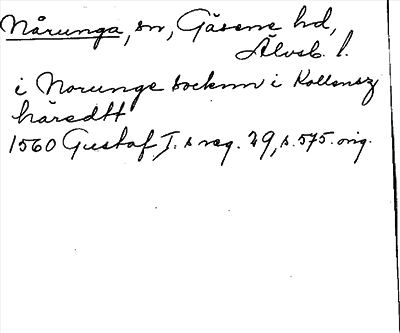 Nårunga, sn, Gäsene hd,
Älvsb. l.
i Norunge socknn i Kollensz
häredtt
1560 Gustaf I. s reg. 29, s. 575. orig.